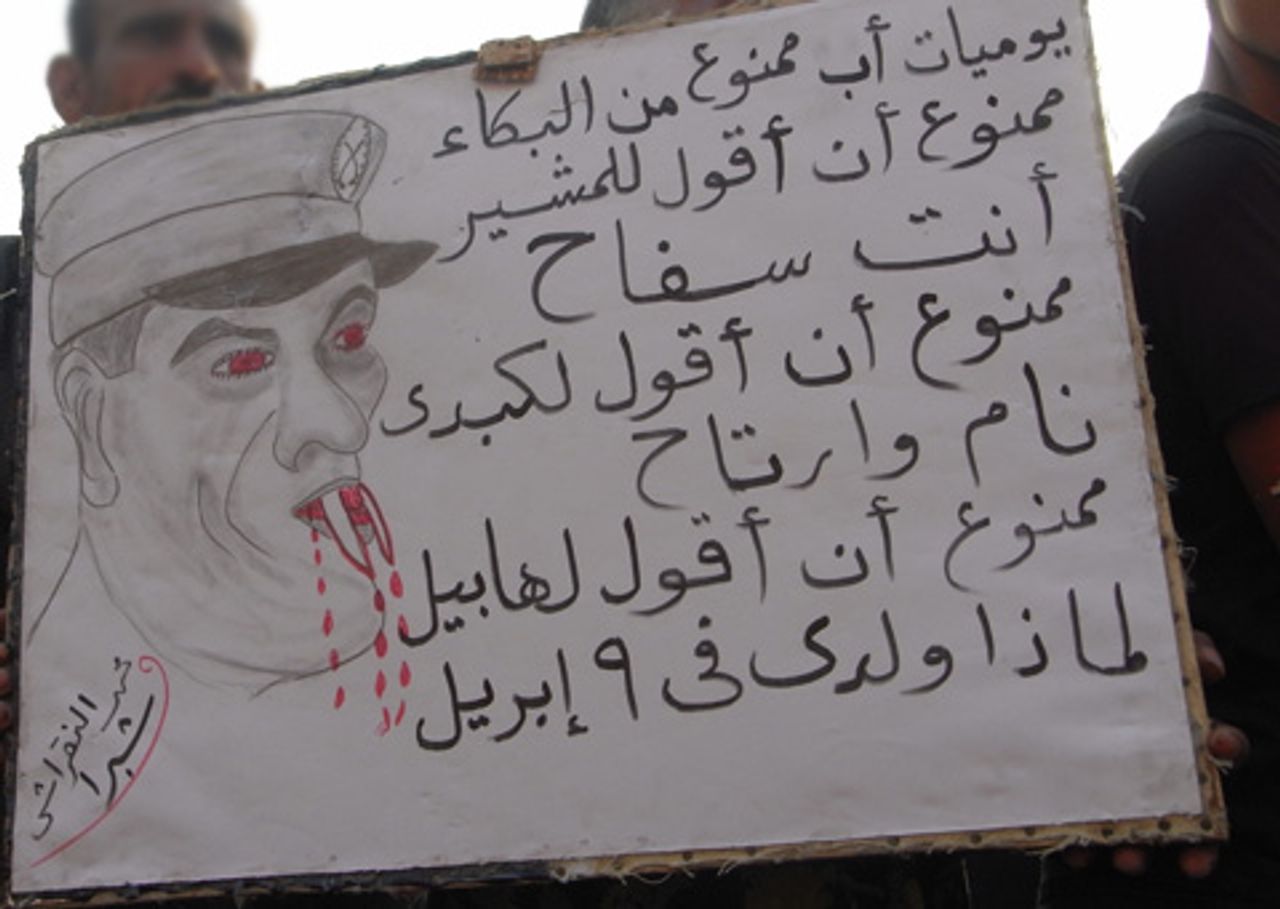 يوميات أب ممنوع من البكاء
ممنوع أن أقول للمشير
أنت سفاح
ممنوع أن أقول لكبدى
نام وارتاح
ممنوع أن أقول لهابيل
لماذا ولدى فى ٩ إبريل
النقراش
شبرا